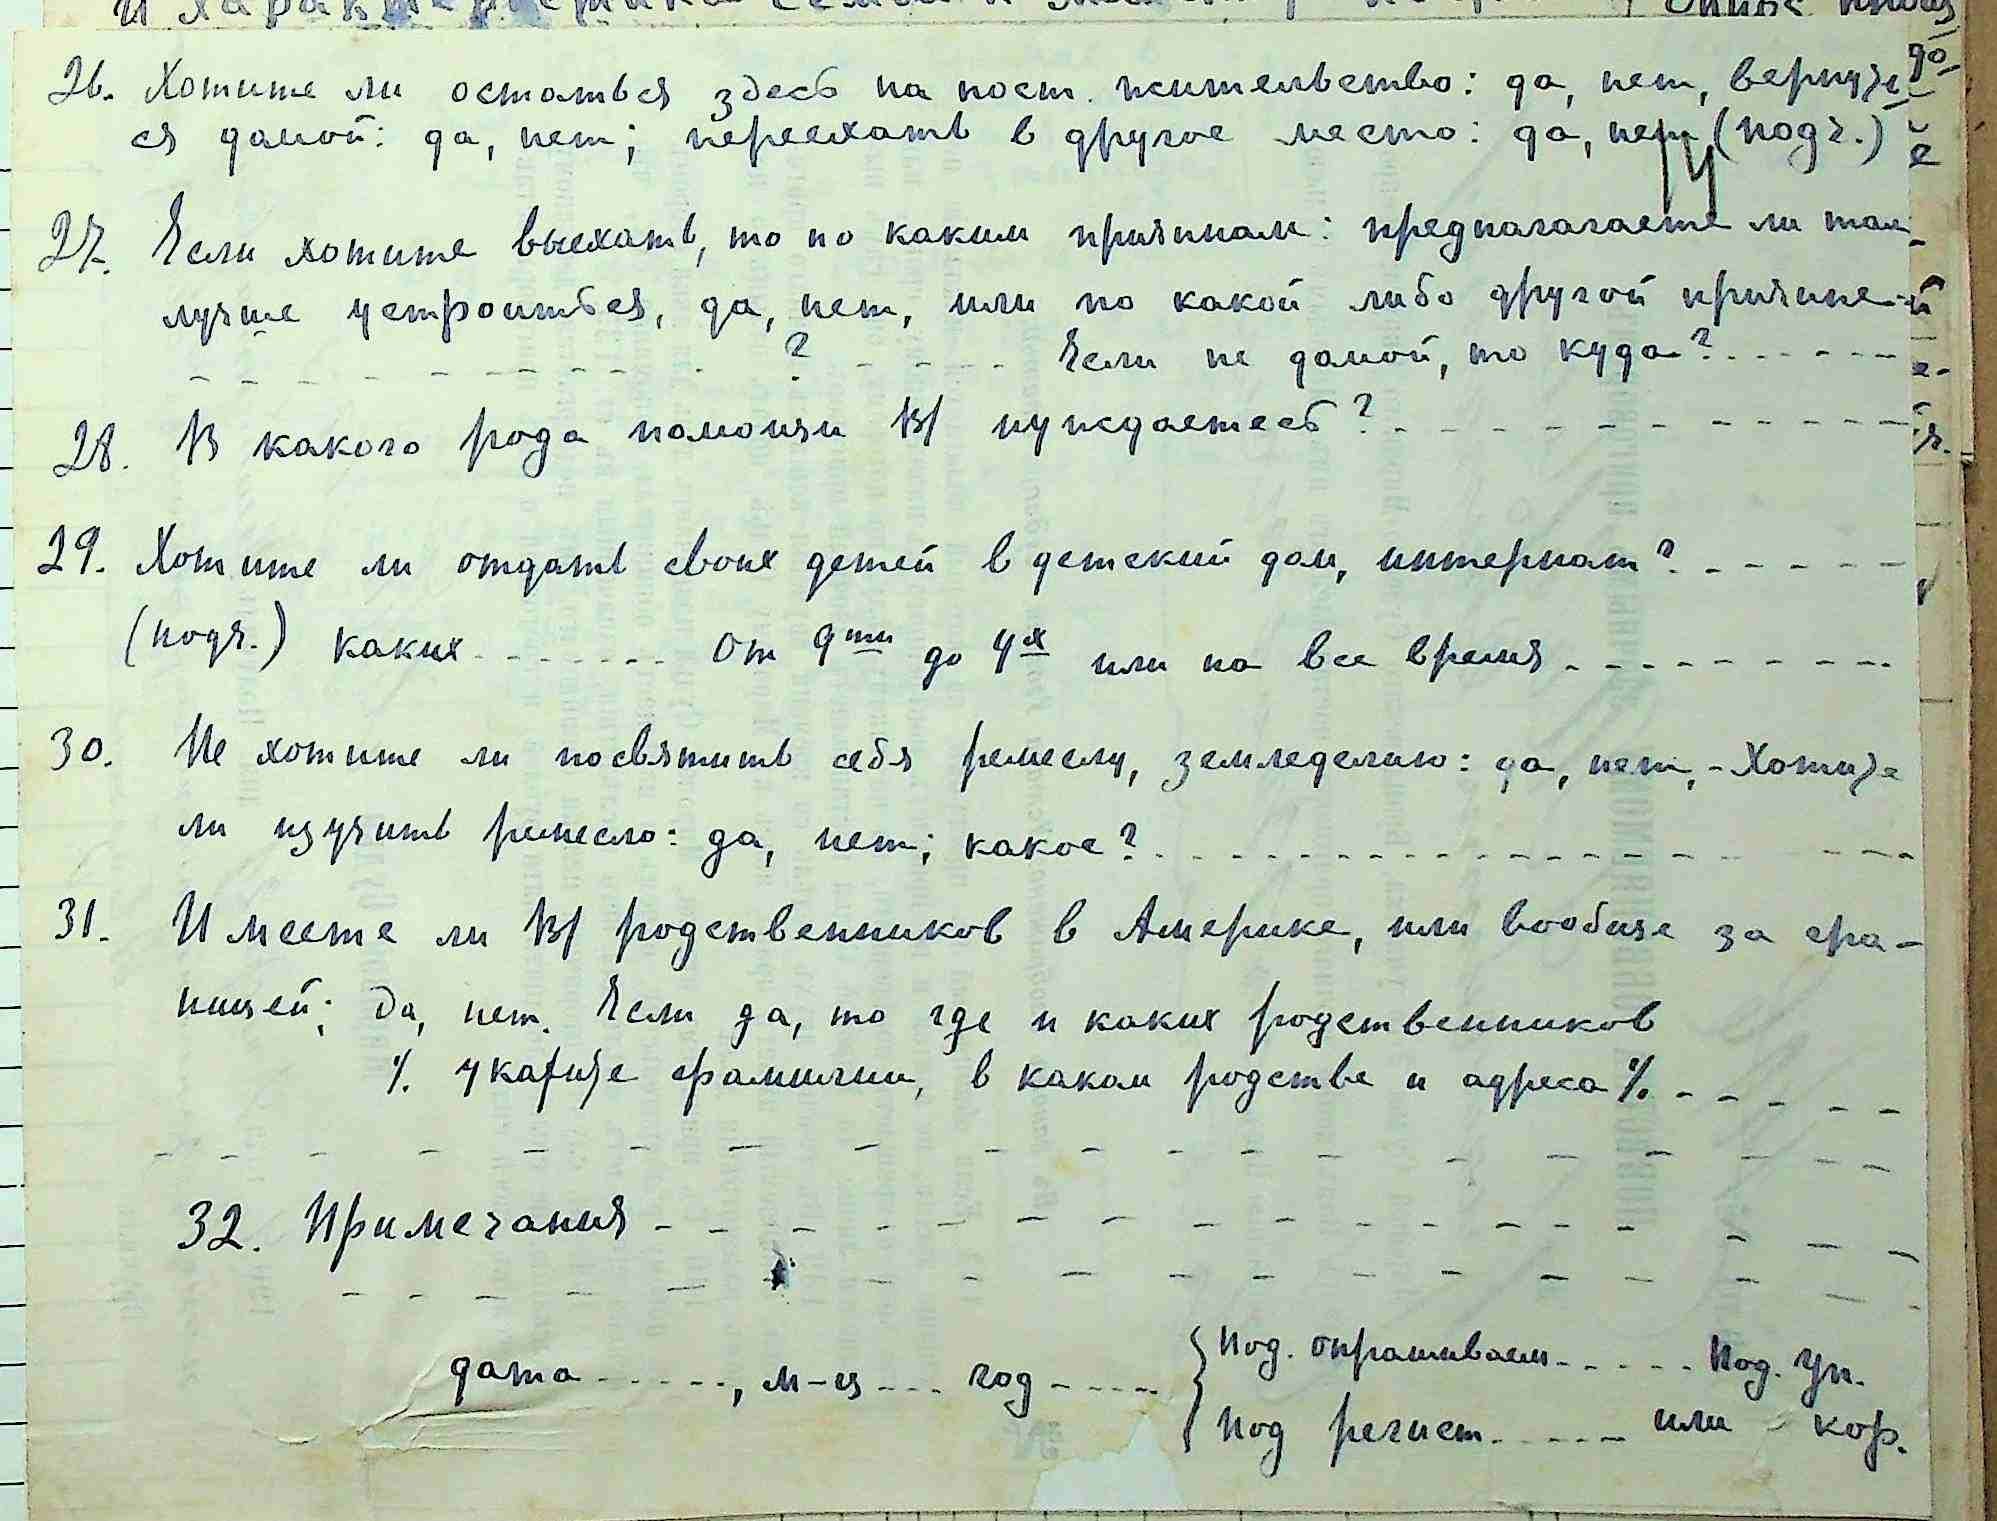 и характеристика семьи и
26. Хотите ли остаться здесь на пост. жительство: да, нет, вернуть
ся домой: да, нет; переехать в другое место: да, нет (подч.)
27. Если хотите выехать, то по каким причинам: предполагаете ли там
лучше устроиться, да, нет, или по какой либо другой причине
? Если не домой, то куда?
28. В какого рода помощи Вы нуждаетесь?
29. Хотите ли отдать своих детей в детский дом, интернат?
(подч.) каких от 9ти до 4х или на все время
30. Не хотите ли посвятить себя ремеслу, земледелию: да, нет, - Хотите
ли изучить ремесло: да, нет; какое?
31. Имеете ли Вы родственников в Америке, или вообще за гра-
ницей; да, нет. Если да, то где и каких родственников
%. укажите фамилии, в каком родстве и адреса %.
32. Примечания
дата , м-ц год
Под. опрашиваем. Под. уп.
Под регист. или кор.